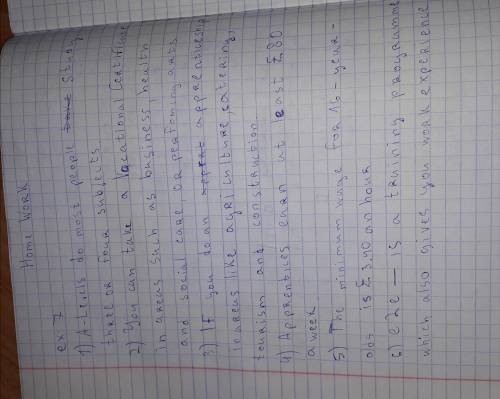 Home Work
ex. 7
1) A-Levels do most people study
three or four subjects.
2) You can take a vocational Certificate
in areas such as business, health
and social care, or performing arts
3) If you do an apprenticeship
in areas like agriculture, catering,
tourism and construction.
4) Apprentices earn at least £80
a week
5) The minimum wage for 16-year-
olds is £3.40 an hour
6) e2e — is a training programme
which also gives you work experience